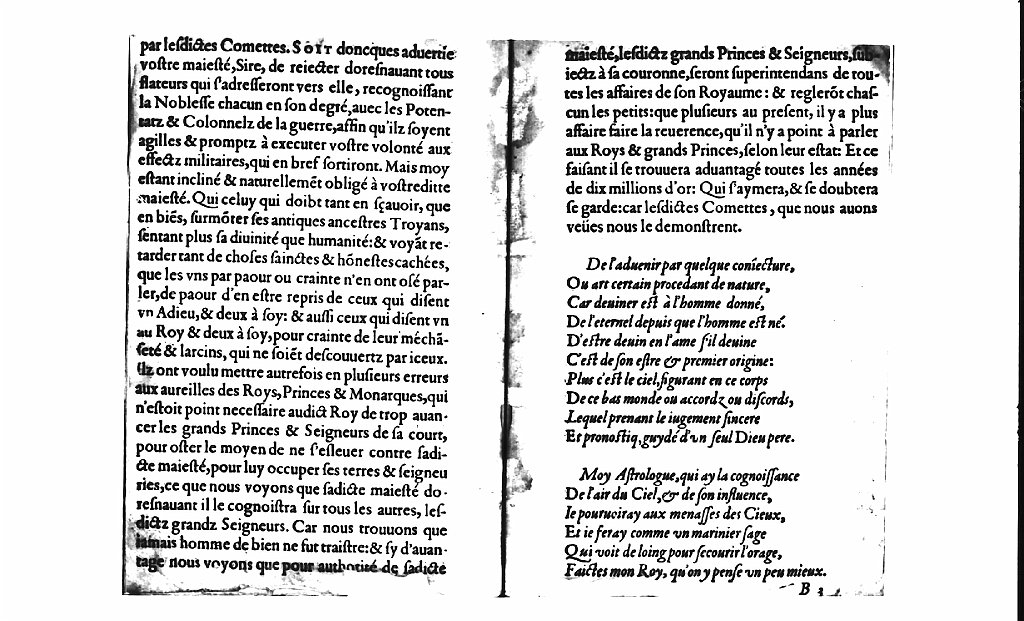 par lesdictes Comettes. SOIT doncques aduertie
vostre maiesté, Sire, de reiecter doresnauant tous
flateurs qui s'adresseront vers elle, recognoissant
la Noblesse chacun en son degré, auec les Poten-
tatz & Colonnelz de la guerre, affin qu'ilz soyent
agilles & promptz à executer vostre volonté aux
effectz militaires, qui en bref sortiront. Mais moy
estant incliné & naturellemẽt obligé à vostreditte
maiesté. Qui celuy qui doibt tant en sçauoir, que
en biẽs, surmõter ses antiques ancestres Troyans,
sentant plus sa diuinité que humanité: & voyãt re-
tarder tant de choses sainctes & hõnestes cachées,
que les vns par paour ou crainte n'en ont osé par-
ler, de paour d'en estre repris de ceux qui disent
vn Adieu, & deux à soy: & aussi ceux qui disent vn
au Roy & deux à soy, pour crainte de leur mẽchã-
seté & larcins, qui ne soiẽt descouuertz par iceux.
Ilz ont voulu mettre autrefois en plusieurs erreurs
aux aureilles des Roys, Princes & Monarques, qui
n'estoit point necessaire audict Roy de trop auan-
cer les grands Princes & Seigneurs de sa court,
pour oster le moyen de ne s'esleuer contre sadi-
cte maiesté, pour luy occuper ses terres & seigneu
ries, ce que nous voyons que sadicte maiesté do-
resnauant il le cognoistra sur tous les autres, les-
dictz grandz Seigneurs. Car nous trouuons que
iamais homme de bien ne fut traistre: & sy d'auan-
tage nous voyons que pour authorité de sadicte
maiesté, lesdictz grands Princes & Seigneurs, sub-
iectz à sa couronne, seront superintendans de tou-
tes les affaires de son Royaume: & reglerõt chas-
cun les petits: que plusieurs au present, il y a plus
affaire faire la reuerence, qu'il n'y a point à parler
aux Roys & grands Princes, selon leur estat: Et ce
faisant il se trouuera aduantagé toutes les années
de dix millions d'or: Qui s'aymera, & se doubtera
se garde: car lesdictes Comettes, que nous auons
veües nous le demonstrent.
De l'aduenir par quelque coniecture,
Ou art certain procedant de nature,
Car deuiner est à l'homme donné,
De l'eternel depuis que l'homme est né.
D'estre deuin en l'ame s'il deuine
C'est de son estre & premier origine:
Plus c'est le ciel, figurant en ce corps
De ce bas monde ou accordz ou discords,
Lequel prenant le iugement sincere
Et pronostiq, guydé d'vn seul Dieu pere.
Moy Astrologue, qui ay la cognoissance
De l'air du Ciel, & de son influence,
Ie pouruoiray aux menasses des Cieux,
Et ie feray comme vn marinier sage
Qui voit de loing pour secourir l'orage,
Faictes mon Roy, qu'on y pense vn peu mieux.
B 3